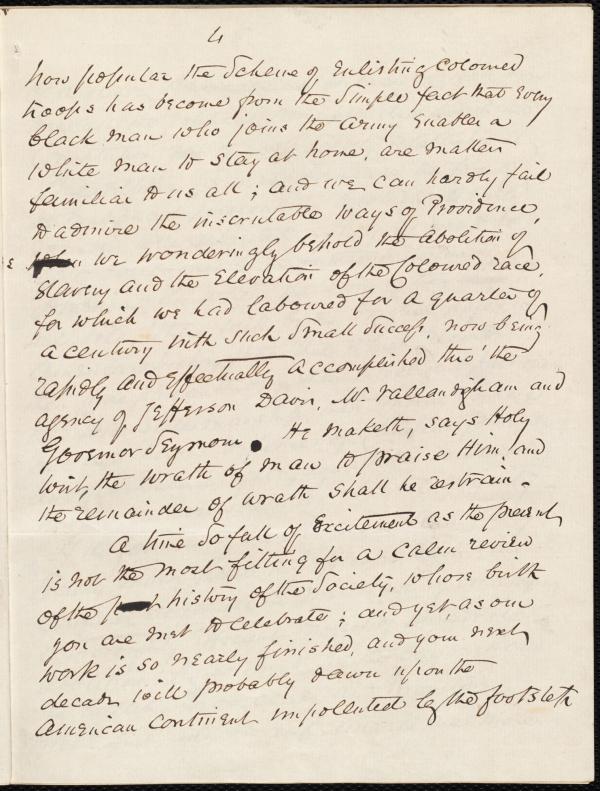 4
how popular the Scheme of Enlisting Coloured
troops has become from the Simple fact that Every
black man who joins the army Enables a
white man to stay at home, are matters
familiar to us all; and we can hardly fail
to admire the inscrutable ways of Providence,
as we wonderingly behold the Abolition of
Slavery and the Elevation of the Coloured race,
for which we had laboured for a quarter of
a century with such Small Success, now being
rapidly and Effectually accomplished thro' the
agency of Jefferson Davis, Mr. Vallandigham and
Governor Seymour. He maketh, says Holy
Writ, the wrath of man to praise Him, and
the remainder of wrath shall he restrain.
A time so full of Excitement as the present
is not the most fitting for a calm review
of the history of the Society, whose birth
you are met to celebrate; and yet, as our
work is so nearly finished, and your next
decade will probably dawn upon the
American Continent unpolluted by the footsteps